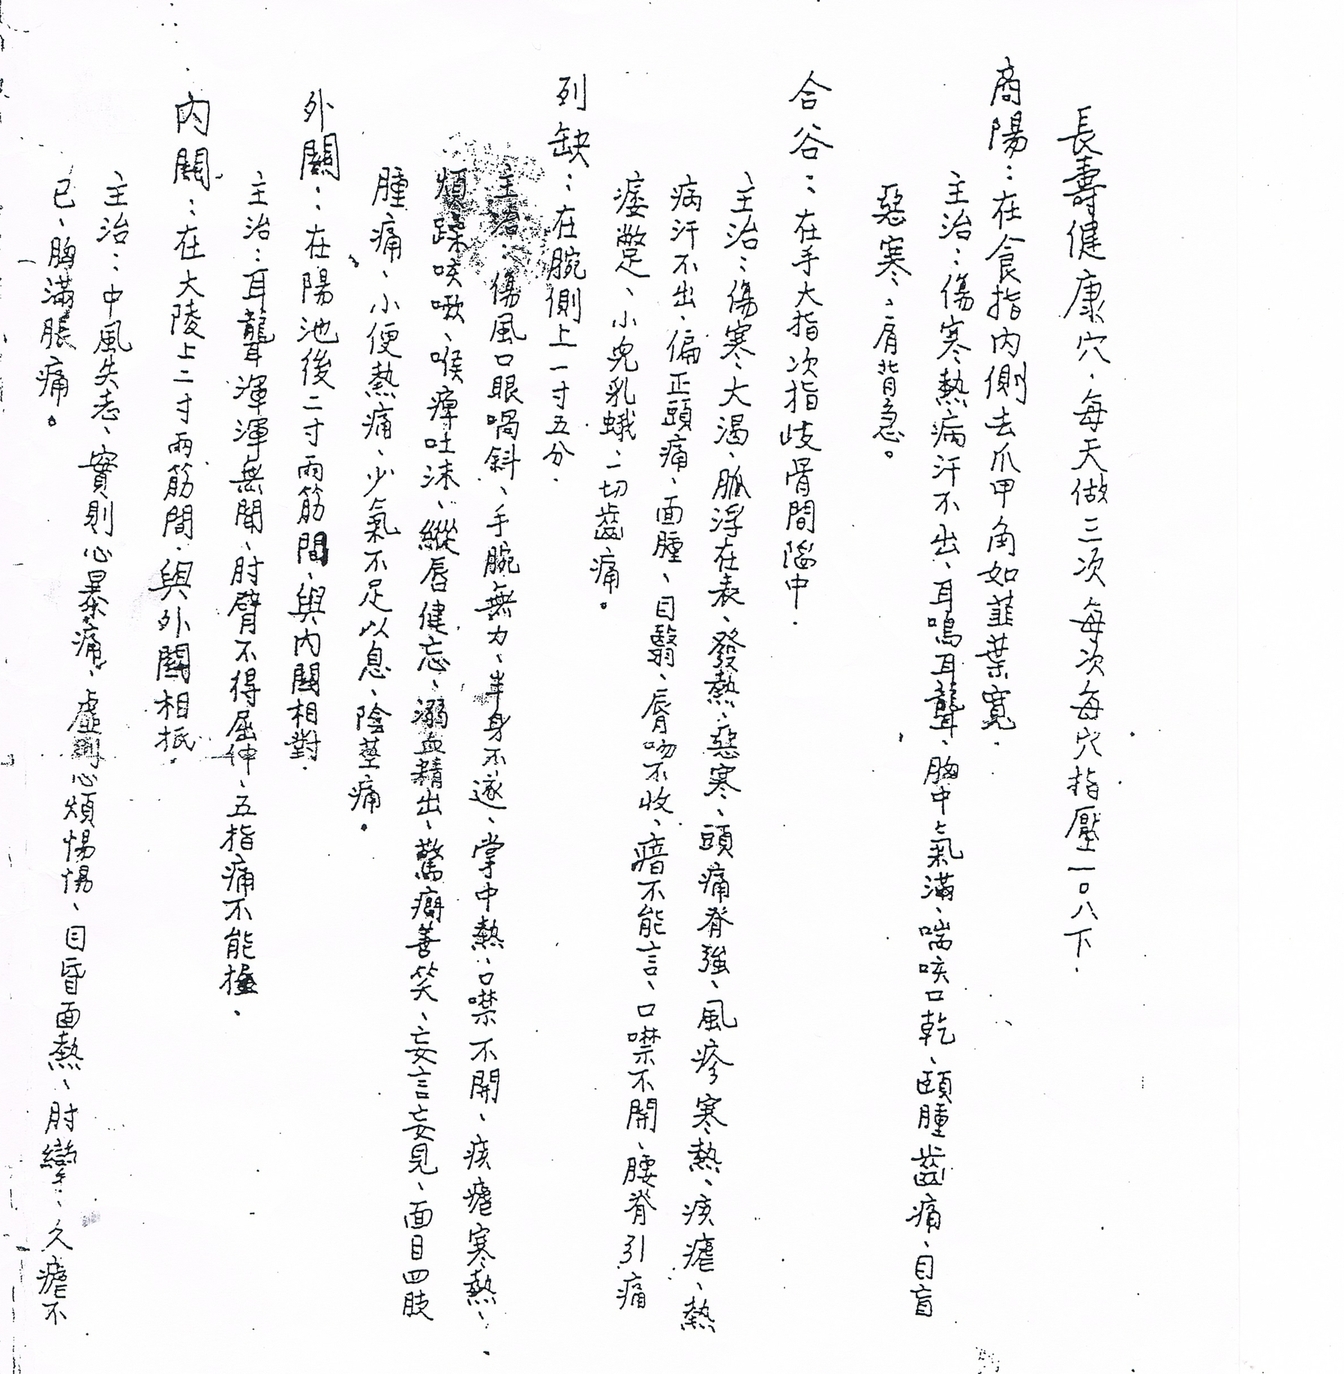 長壽健康穴．每天做三次每次每穴指壓一０八下．
商陽：在食指內側去爪甲角如韮葉寬．
主治：傷寒熱病汗不出、耳鳴耳聾、胸中氣滿、喘咳口乾、頤腫齒痛、目盲
惡寒、肩背急。
合谷：在手大指次指歧骨間陷中．
主治：傷寒大渴、脈浮在表、發熱惡寒、頭痛脊強、風疹寒熱、痎瘧、熱
病汗不出、偏正頭痛、面腫、目翳、唇吻不收、瘖不能言、口噤不開、腰脊引痛
痿躄、小兒乳蛾、一切齒痛。
列缺：在腕側上一寸五分．
主治：傷風口眼喎斜、手腕無力、半身不遂、掌中熱、口噤不開、痎瘧寒熱、
煩躁咳嗽、喉痺吐沫、縱唇健忘、溺血精出、驚癇善笑、妄言妄見、面目四肢
腫痛、小便熱痛、少氣不足以息、陰莖痛。
外關：在陽池後二寸兩筋間、與內關相對．
主治：耳聾渾渾無聞、肘臂不得屈伸、五指痛不能握．
內關：在大陵上二寸兩筋間．與外關相抵．
主治：中風失志、實則心暴痛、虛則心煩惕惕、目昏面熱、肘攣、久瘧不
已、胸滿脹痛。